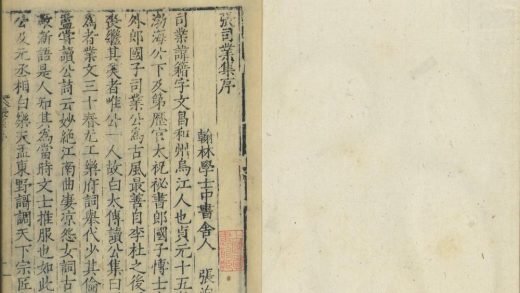 張司業集序
翰林學士中書舍人 張
司業諱籍字文昌和州烏江人也貞元十五
渤海公下及第歷官太祝秘書郎國子博士
外郎國子司業公為古風最善自李杜之後
喪繼其美者唯公一人故白太傅讀公集曰
為者業文三十春尤工樂府詞舉代少其倫
監嘗讀公詩云妙絕江南曲凄涼怨女詞古
敵新語是人知其為當時文士推服也如此
公及元丞相白樂天孟東野謌調天下宗匠